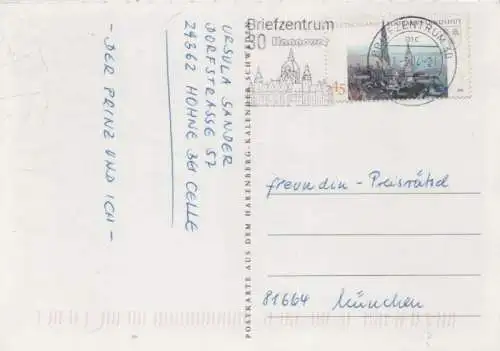 - DER PRINZ UND ICH -
URSULA SANDER
DORFSTRASSE 57
29362 HOHNE BEI CELLE
POSTKARTE AUS DEM HARENBERG-KALENDER
Briefzentrum
30 Hannover
BRIEFZENTRUM 30
freundin - Preisrätsel
81664 München